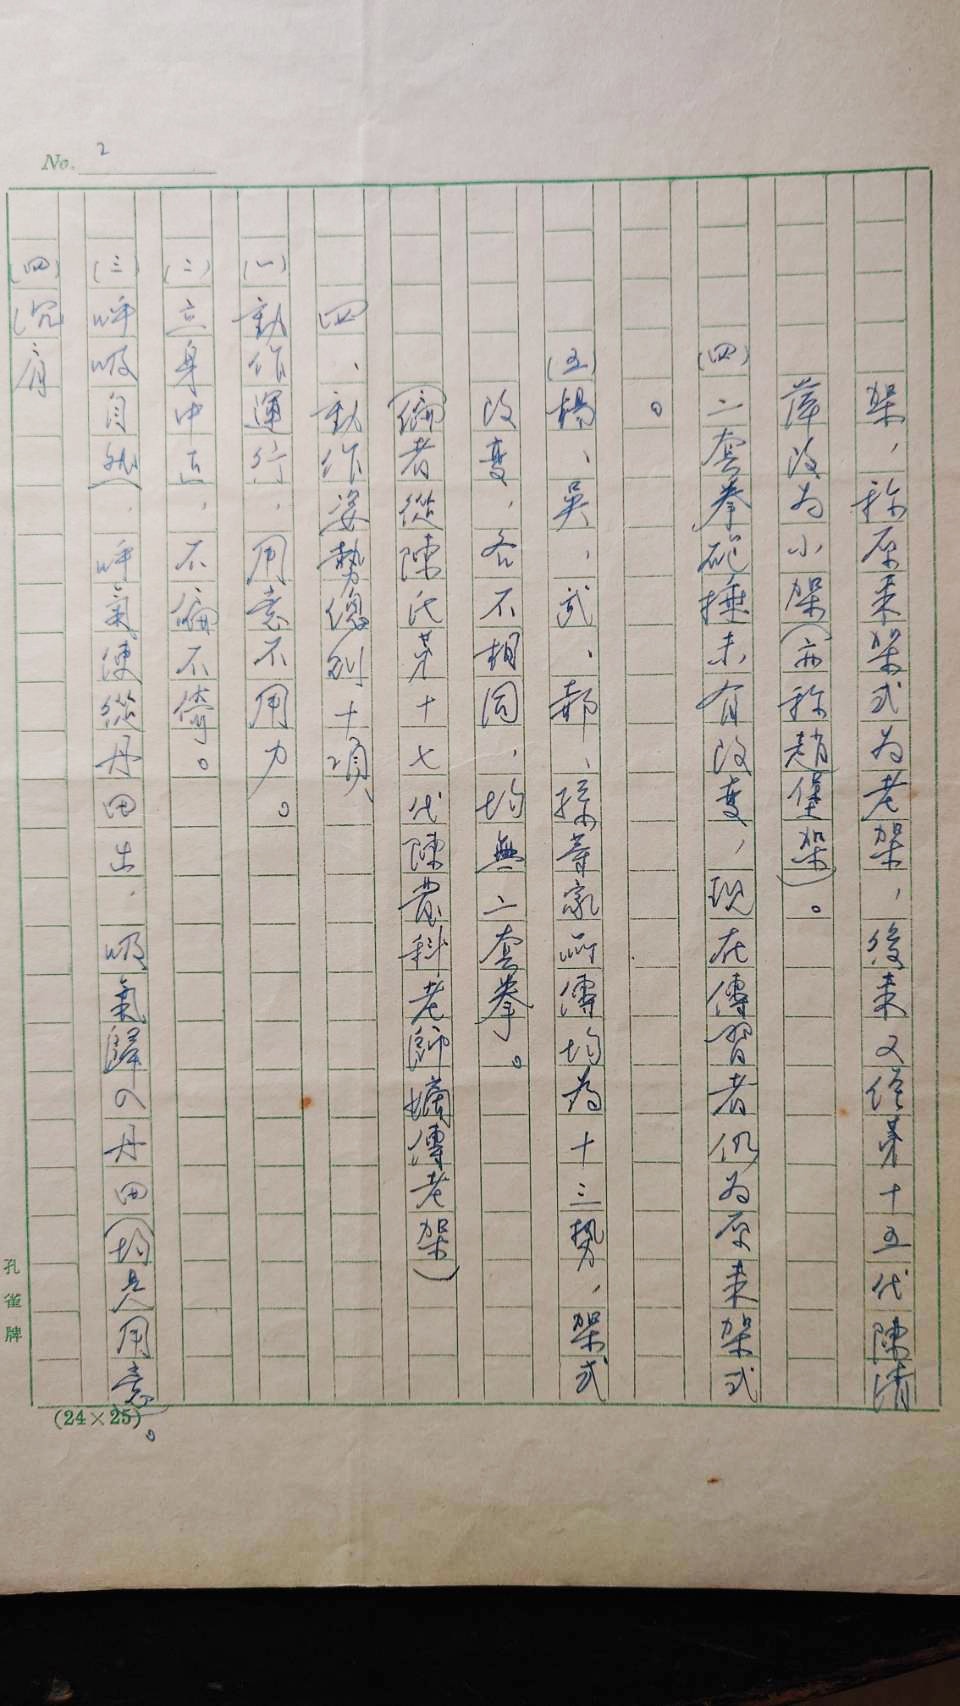 No. 2
架，称原来架式为老架，後来又經第十五代陳清
萍改为小架（亦称趙堡架）。
（四）二套拳砲捶未有改變，現在傳習者仍为原来架式
。
（五）楊、吳、武、郝、孫等家所傳均為十三勢，架式
改變，各不相同，均無二套拳。
（編者從陳氏第十七代陳發科老師嫡傳老架）
四、動作姿勢總則十項
（一）動作運行，用意不用力。
（二）立身中正，不偏不倚。
（三）呼吸自然，呼氣使從丹田出，吸氣歸入丹田（均是用意）。
（四）沉肩
孔雀牌
(24×25)